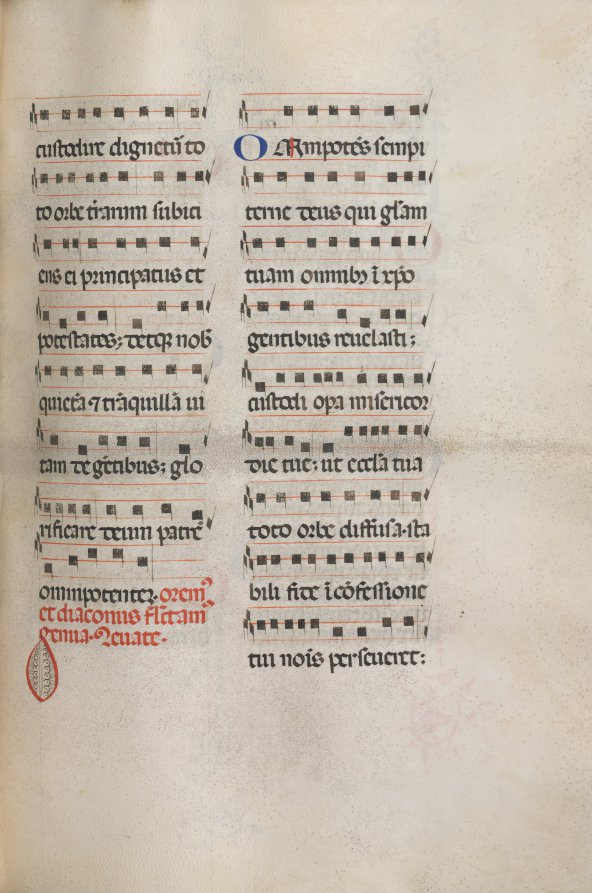 custodire dignetũ to
to orbe tr̃arum subici
ens ei principatus et
potestates; detq̃ nob̃
quietã ⁊ trãquillã ui
tam degẽtibus; glo
rificare deum patrẽ
omnipotentez. orem̃⁹
et diaconus flc̃tam⁹
genua. Leuate.
Omnipotẽs sempi
terne deus qui gl̃am
tuam omnibꝫ ĩ xp̃o
gentibus reuelasti;
custodi oꝑa misericor
die tue; ut eccl̃a tua
toto orbe diffusa. sta
bili fide ĩ cõfessione
tui nois̃ perseueret: